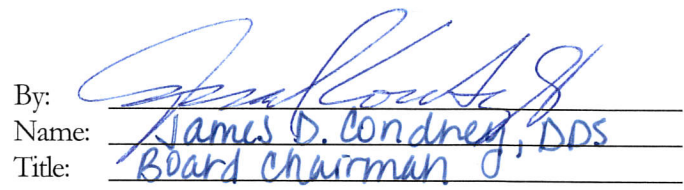 By:
Name: James D. Condrey, DDS
Title: Board Chairman